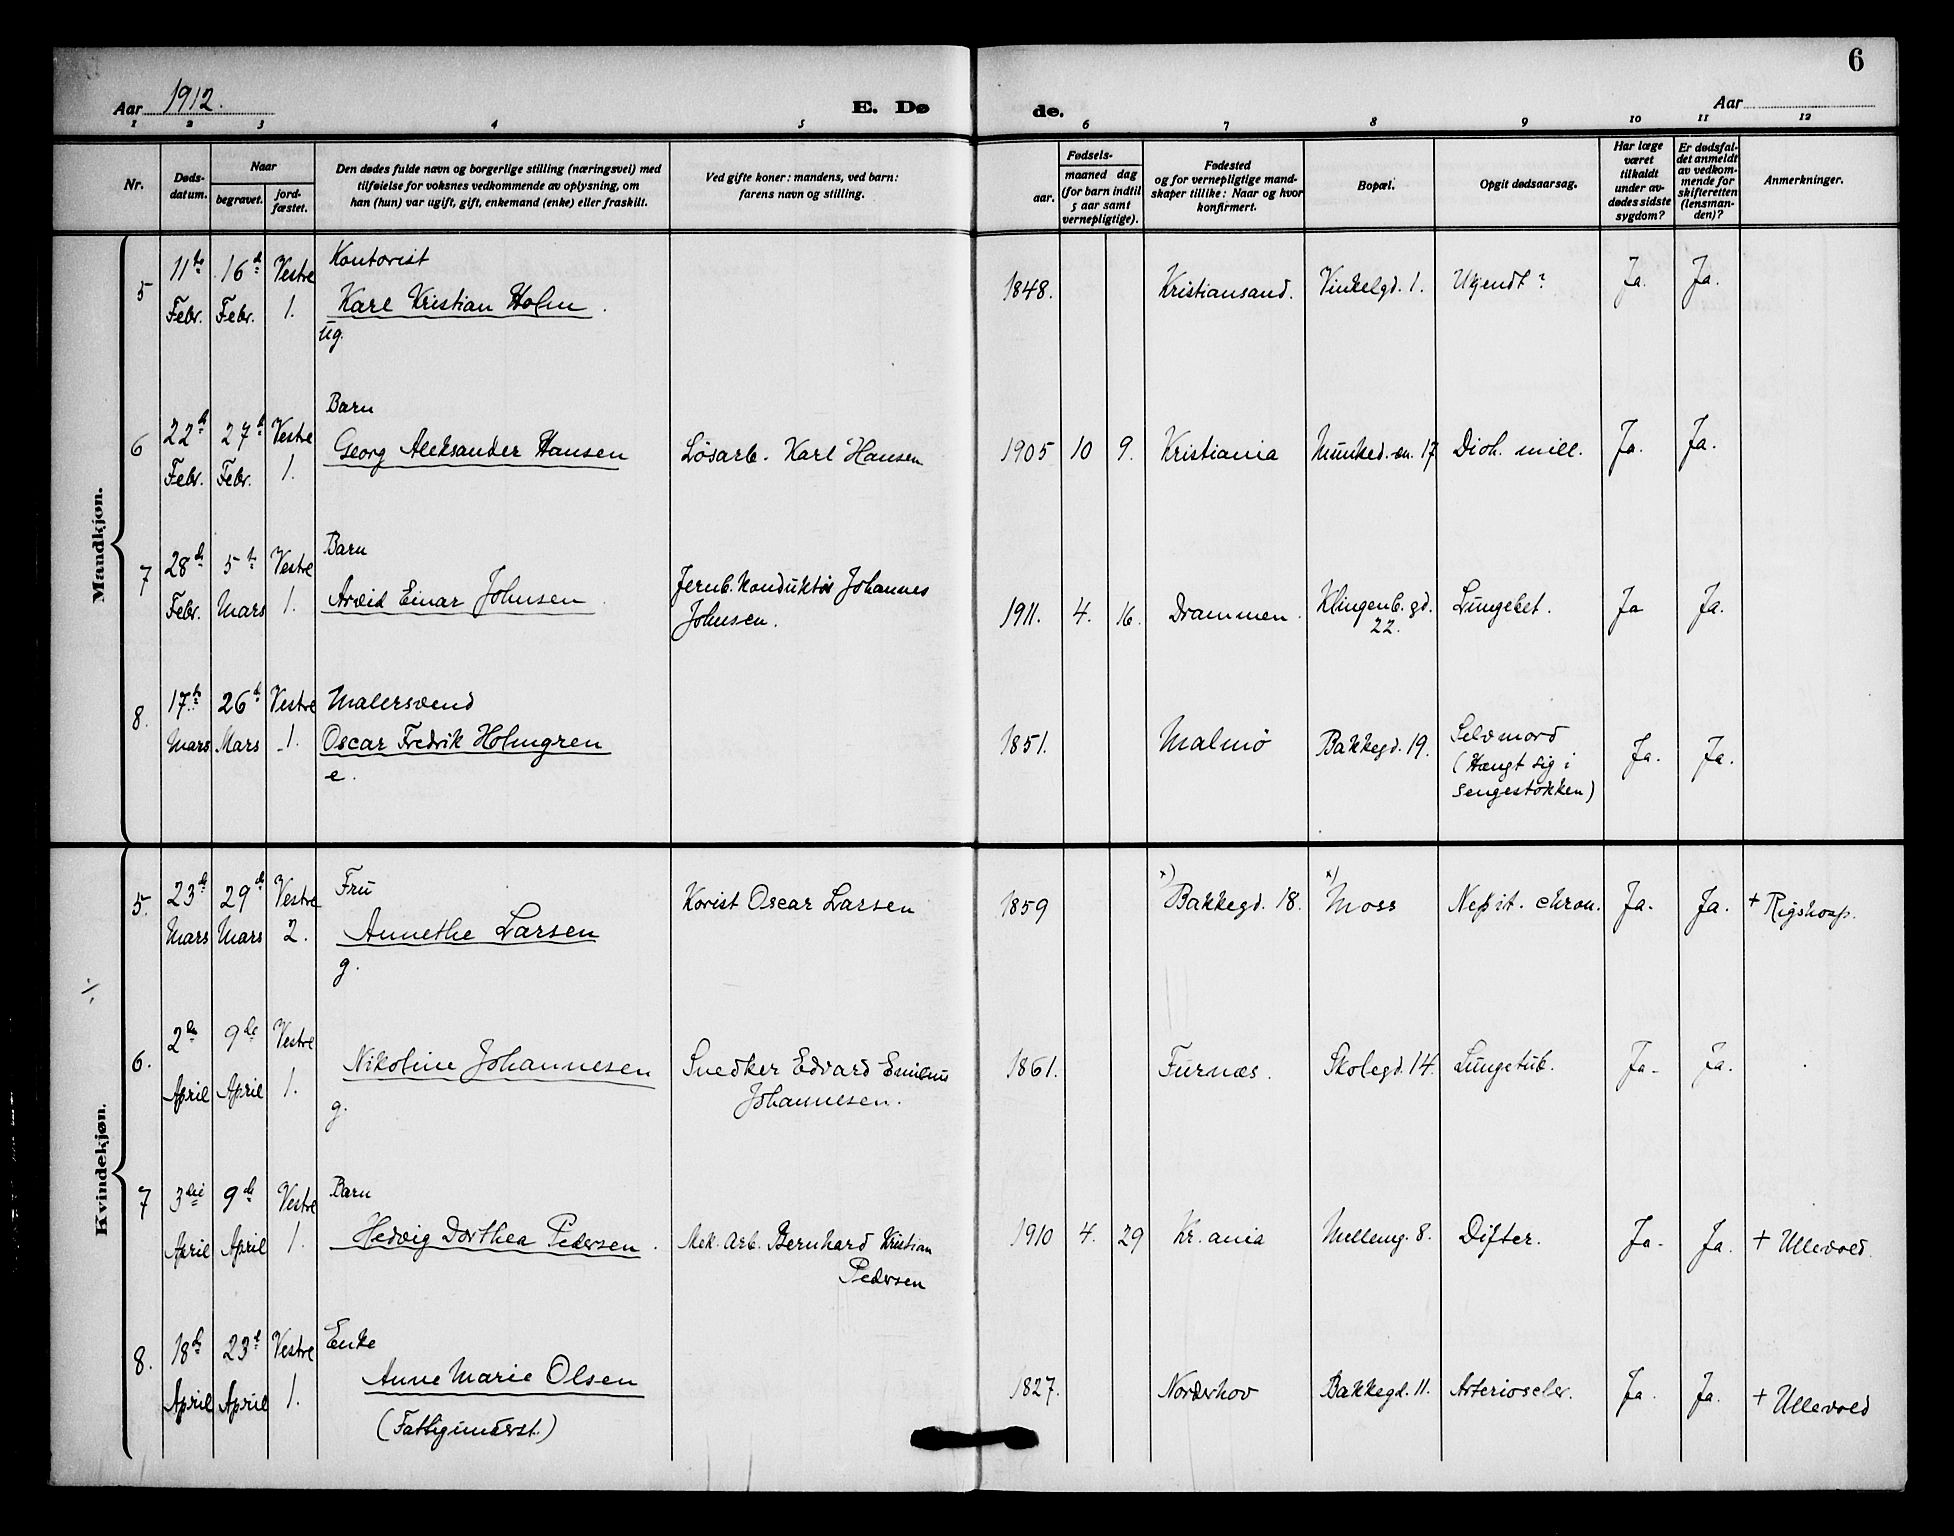 6
Aar 1912.
E. Dø
de.
Aar
1 2 3 4 5 6 7 8 9 10 11 12
Nr.
Døds-
datum.
Naar
begravet.
jord-
fæstet.
Den dødes fulde navn og borgerlige stilling (næringsvei) med
tilføielse for voksnes vedkommende av oplysning, om
han (hun) var ugift, gift, enkemand (enke) eller fraskilt.
Ved gifte koner: mandens, ved barn:
farens navn og stilling.
Fødsels-
aar.
maaned dag
(for barn indtil
5 aar samt
vernepligtige).
Fødested
og for vernepligtige mand-
skaper tillike: Naar og hvor
konfirmert.
Bopæl.
Opgit dødsaarsag.
Har læge
været
tilkaldt
under av-
dødes sidste
sygdom?
Er dødsfal-
det anmeldt
av vedkom-
mende for
skifteretten
(lensman-
den)?
Anmerkninger.
Mandkjøn.
5
11te
Febr.
16d
Febr.
Vestre
1.
Kontorist
Karl Kristian Holm.
ug.
1848.
Kristiansand.
Vinkelgd. 1.
Ukjendt?
Ja.
Ja.
6
22d
Febr.
27d
Febr.
Vestre
1.
Barn
Georg Aleksander Hansen
Løsarb. Karl Hansen
1905
10
9.
Kristiania
Munked.-en. 17
Dioh. mill.
Ja.
Ja.
7
28d
Febr.
5t
Mars
Vestre
1.
Barn
Arvid Einar Johnsen.
Jernb. Konduktør Johannes
Johnsen.
1911.
4.
16.
Drammen.
Klingenb. gd.
22.
Lungebet.
Ja
Ja.
8.
17t
Mars
26d
Mars
Vestre
1.
Malersvend
Oscar Fredrik Holmgren
e.
1851.
Malmø
Bakkegd. 19.
Selvmord
(Hængt sig i
sengestokken)
Ja.
Ja.
Kvindekjøn.
5.
23d
Mars
29d
Mars
Vestre
2.
Fru
Annethe Larsen
g.
Korist Oscar Larsen
1859
x) Bakkegd. 18.
x) Moss
Nefrit. chron.
Ja.
Ja.
+ Rigshosp.
6.
2den
April
9de
April
Vestre
1.
Nikoline Johannesen
g.
Snedker Edvard Emilius
Johannesen.
1861.
Furnæs.
Skolegd. 14.
Lungetub.
Ja.
Ja.
7
3die
April
9d
April
Vestre
1.
Barn
Hedvig Dorthea Pedersen.
Mek. Arb. Bernhard Kristian
Pedersen
1910
4.
29
Kr.ania
Mellemg. 8.
Difter.
Ja.
Ja.
+ Ullevold
8.
18d
April
23d
April
Vestre
1.
Enke
Anne Marie Olsen
(Fattigunderst.)
1827.
Norderhov
Bakkegd. 11.
Arterioscler.
Ja.
Ja.
+ Ullevold